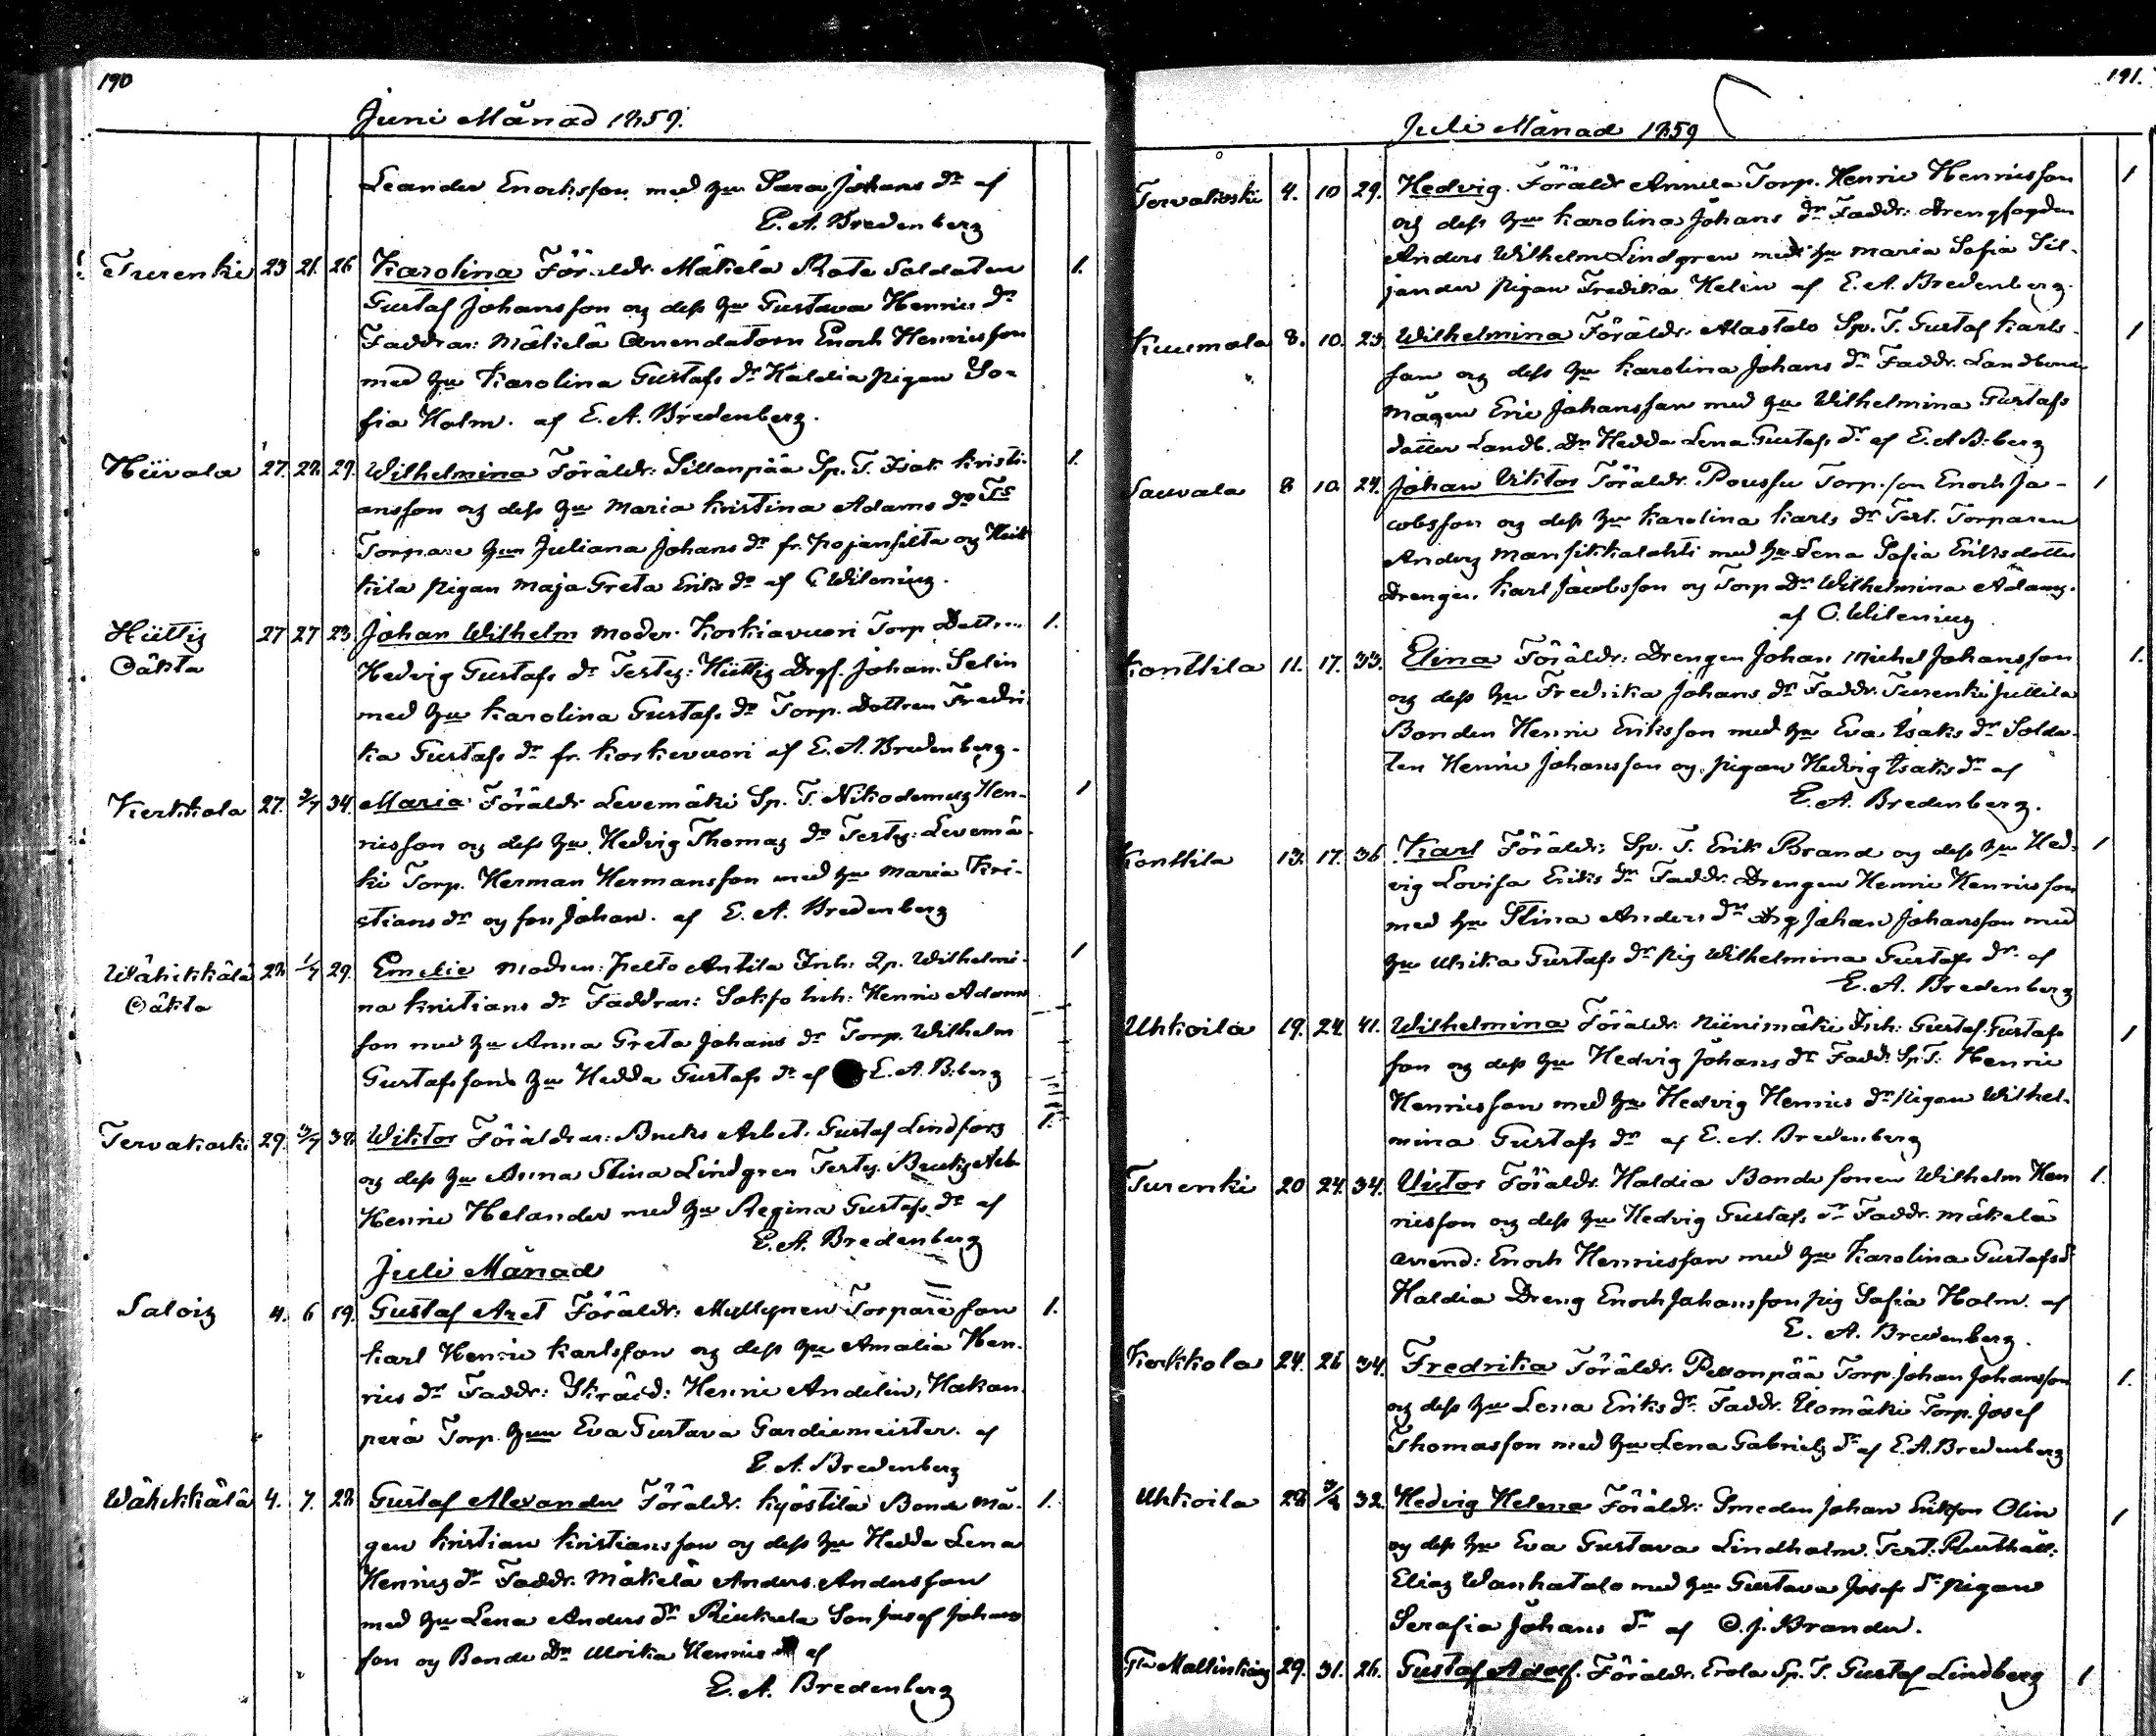 190
Juni Månad 1859.
Leander Enochsson med hu Sara Johans dr af
E. A. Bredenberg
Turenki 23 21. 26 Karolina Föräldr. Mäkelä Rote Soldaten 1.
Gustaf Johansson og dess hu Gustava Henrics dr
Faddrar: Mäkelä Arendatorn Enoch Henricsson
med hu Karolina Gustafs dr Haldia pigan So-
fia Holm. af E. A. Bredenberg.
Hiivala 27. 28. 29. Wilhelmina Föräldr: Sillanpää Sp. T. Isak Kristi- 1.
ansson og dess hu Maria Kristina Adams dr Ts
Torpare hun Juliana Johans dr fr. Pojansilta og Heik
kila pigan Maja Greta Eriks dr af C. Wilenius.
Hiittis 27 27 23. Johan Wilhelm moder. Korkiavuori Torp Dottr 1.
Oäkta Hedvig Gustafs dr Testes: Hiittis Drgs. Johan Selin
med hu Karolina Gustafs dr Torp. Dottren Fredri
ka Gustafs dr fr. Korkevuori af E. A. Bredenberg.
Kerkkola 27. 3/7 34. Maria Föräldr Levemäki Sp. T. Nikodemus Hen- 1
ricsson og dess hu Hedvig Thomas dr Testes: Levemä
ki Torp. Herman Hermansson med hu Maria Kri-
stians dr og son Johan. af E. A. Bredenberg
Wähikkälä 28 1/7 29. Emelie modren: Pelto Antila Inh: Qp. Wilhelmi- 1
Oäkta na Kristians dr Faddrar: Sakso Inh: Henric Adams
son med hu Anna Greta Johans dr Torp. Wilhelm
Gustafssons hu Hedda Gustafs dr af E. A. B:berg
Tervakoski 29. 3/7 38. Wiktor Föräldrar: Bruks Arbet. Gustaf Lindfors 1.
og dess hu Anna Stina Lindgren Testes. Bruks Arb
Henric Helander med hu Regina Gustafs dr af
E. A. Bredenberg
Juli Månad
Salois 4. 6 19. Gustaf Axel Föräldr: Myllynen Torpare son 1.
Karl Henric Karlsson og dess hu Amalia Hen-
rics dr Faddr: Skrädd: Henric Andelin, Hakan
perä Torp. hun Eva Gustava Gardiemeister. af
E. A. Bredenberg
Wähikkälä 4. 7. 28 Gustaf Alexander Föräldr. Kyöstilä Bonde må- 1.
gen Kristian Kristiansson og dess hu Hedda Lena
Henrics dr Faddr. Mäkelä Anders Andersson
med hu Lena Anders dr Son Josef Johans
son og Bonde Dr Ulrika Henrics af
E. A. Bredenberg
191.
Juli Månad 1859
Tervakoski 4. 10 29. Hedvig. Föräldr Annila Torp. Henric Henricsson 1
og dess hu Karolina Johans dr Faddr. Drengfogden
Anders Wilhelm Lindgren med hu Maria Sofia Sil-
jander pigan Fredika Helin af E. A. Bredenberg.
Kuumola 8. 10. 23. Wilhelmina Föräldr. Alastalo Sp. T. Gustaf Karls- 1
son og dess hu Karolina Johans dr Faddr. Landbonde
mågen Eric Johansson med hu Wilhelmina Gustafs
dotter Landb. Dn Hedda Lena Gustafs dr af E. A B:berg
Sauvala 8 10. 24. Johan Viktor Föräldr. Poussu Torp. son Enoch Ja- 1
cobsson og dess hu Karolina Karls dr Test. Torparen
Anders Mansikkalahti med hu Lena Sofia Eriksdotter
Drengen Karl Jacobsson og Torp Dn Wilhelmina Adams.
af C. Wilenius
Konttila 11. 17. 33. Elina Föräldr: Drengen Johan Michel Johansson 1.
og dess hu Fredrika Johans dr Faddr. Turenki Juttila
Bonden Henric Eriksson med hu Eva Isaks dr Solda-
ten Henric Johansson og pigan Hedvig Isaks dr af
E. A. Bredenberg.
Konttila 13. 17. 36. Karl Föräldr: Sp. T. Erik Brand og dess hu Hed- 1
vig Lovisa Eriks dr Faddr. Drengen Henric Henricsson
med hu Stina Anders dr Drg Johan Johansson med
hu Ulrika Gustafs dr pig Wilhelmina Gustafs dr af
E. A. Bredenberg
Uhkoila 19. 24. 41. Wilhelmina Föräldr. Niinimäki Inh: Gustaf Gustafs 1
son og dess hu Hedvig Johans dr Faddr. Sp. T. Henric
Henricsson med hu Hedvig Henrics dr pigan Wilhel-
mina Gustafs dr af E. A. Bredenberg
Turenki 20 24. 34. Victor Föräldr. Haldia Bonde sonen Wilhelm Hen 1.
ricsson og dess hu Hedvig Gustafs dr Faddr. Mäkelä
arrend: Enoch Henricsson med hu Karolina Gustafs dr
Haldia Dreng Enoch Johansson pig Sofia Holm. af
E. A. Bredenberg.
Kerkkola 24. 26 34. Fredrika Föräldr. Pessonpää Torp. Johan Johansson 1.
og dess hu Lena Eriks dr Faddr. Elomäki Torp. Josef
Thomasson med hu Lena Gabriels dr af E. A. Bredenberg
Uhkoila 28 3/8 32. Hedvig Helena Föräldr: Smeden Johan Eriksson Olin 1
og dess hu Eva Gustava Lindholm. Test. Rusthåll:
Elias Wanhatalo med hu Gustava Josefs dr pigan
Serafia Johans dr af O. J. Brander.
29. 31. 26. Gustaf Adolf. Föräldr. Erola Sp. T. Gustaf Lindberg 1